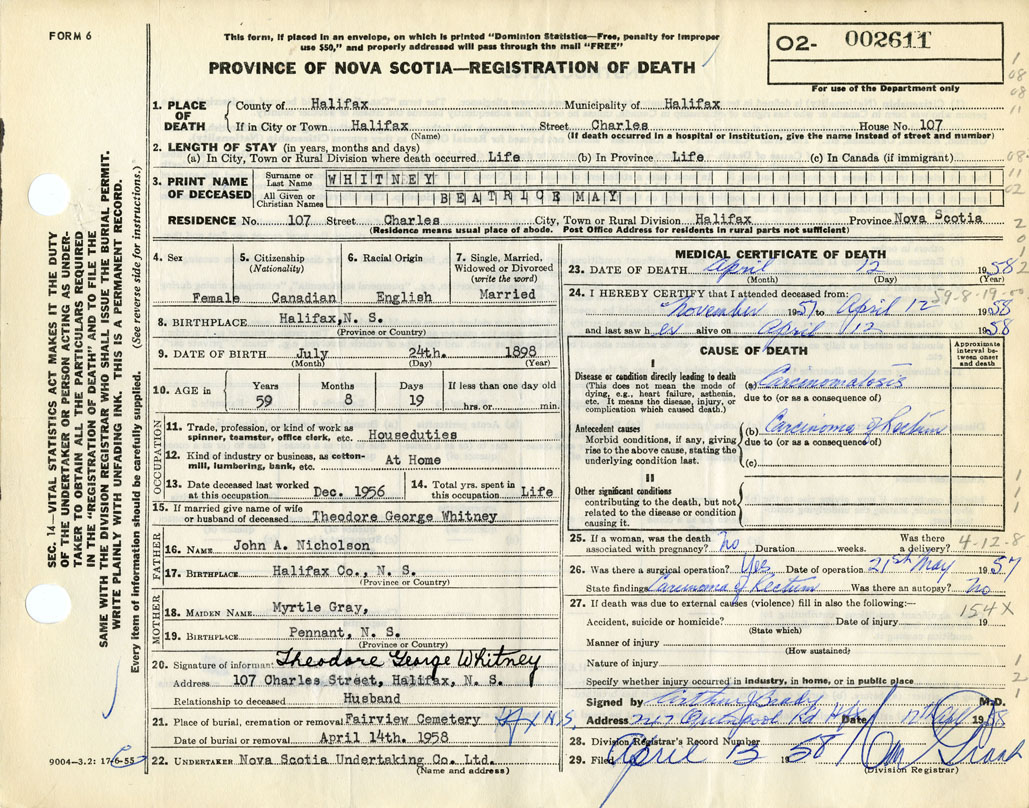 FORM 6
This form, if placed in an envelope, on which is printed "Dominion Statistics—Free, penalty for improper
use $50," and properly addressed will pass through the mail "FREE"
PROVINCE OF NOVA SCOTIA—REGISTRATION OF DEATH
02- 002611
For use of the Department only
SEC. 14—VITAL STATISTICS ACT MAKES IT THE DUTY
OF THE UNDERTAKER OR PERSON ACTING AS UNDER-
TAKER TO OBTAIN ALL THE PARTICULARS REQUIRED
IN THE "REGISTRATION OF DEATH" AND TO FILE THE
SAME WITH THE DIVISION REGISTRAR WHO SHALL ISSUE THE BURIAL PERMIT.
WRITE PLAINLY WITH UNFADING INK. THIS IS A PERMANENT RECORD.
Every item of information should be carefully supplied. (See reverse side for instructions.)
1. PLACE OF DEATH County of Halifax Municipality of Halifax
If in City or Town Halifax Street Charles House No. 107
(Name) (If death occurred in a hospital or institution, give the name instead of street and number)
2. LENGTH OF STAY (in years, months and days)
(a) In City, Town or Rural Division where death occurred Life (b) In Province Life (c) In Canada (if immigrant)
3. PRINT NAME OF DECEASED Surname or Last Name WHITNEY
All Given or Christian Names BEATRICE MAY
RESIDENCE No. 107 Street Charles City, Town or Rural Division Halifax Province Nova Scotia
(Residence means usual place of abode. Post Office Address for residents in rural parts not sufficient)
4. Sex 5. Citizenship (Nationality) 6. Racial Origin 7. Single, Married, Widowed or Divorced (write the word)
Female Canadian English Married
8. BIRTHPLACE Halifax, N. S.
(Province or Country)
9. DATE OF BIRTH July 24th. 1898
(Month) (Day) (Year)
10. AGE in Years Months Days If less than one day old
59 8 19 hrs. or min.
OCCUPATION
11. Trade, profession, or kind of work as
spinner, teamster, office clerk, etc. Houseduties
12. Kind of industry or business, as cotton-
mill, lumbering, bank, etc. At Home
13. Date deceased last worked at this occupation Dec. 1956 14. Total yrs. spent in this occupation Life
15. If married give name of wife
or husband of deceased Theodore George Whitney
FATHER
16. NAME John A. Nicholson
17. BIRTHPLACE Halifax Co., N. S.
(Province or Country)
MOTHER
18. MAIDEN NAME Myrtle Gray,
19. BIRTHPLACE Pennant, N. S.
(Province or Country)
20. Signature of informant Theodore George Whitney
Address 107 Charles Street, Halifax, N. S.
Relationship to deceased Husband
21. Place of burial, cremation or removal Fairview Cemetery Hfx N.S.
Date of burial or removal April 14th. 1958
22. UNDERTAKER Nova Scotia Undertaking Co. Ltd.
(Name and address)
9004—3.2: 17-6-55
MEDICAL CERTIFICATE OF DEATH
23. DATE OF DEATH April 12 1958
(Month) (Day) (Year)
59-8-19-00
24. I HEREBY CERTIFY that I attended deceased from:
November 1957 to April 12 1958
and last saw her alive on April 12 1958
CAUSE OF DEATH
Approximate interval between onset and death
I
Disease or condition directly leading to death
(This does not mean the mode of
dying, e.g., heart failure, asthenia,
etc. It means the disease, injury, or
complication which caused death.)
(a) Carcinomatosis
due to (or as a consequence of)
Antecedent causes
Morbid conditions, if any, giving
rise to the above cause, stating the
underlying condition last.
(b) Carcinoma of Rectum
due to (or as a consequence of)
(c)
II
Other significant conditions
contributing to the death, but not
related to the disease or condition
causing it.
25. If a woman, was the death associated with pregnancy? No Duration weeks. Was there a delivery?
4-12-8
26. Was there a surgical operation? Yes Date of operation 21st May 1957
State findings Carcinoma of Rectum Was there an autopsy? No
27. If death was due to external causes (violence) fill in also the following:—
154X
Accident, suicide or homicide? Date of injury 19
(State which)
Manner of injury
(How sustained)
Nature of injury
Specify whether injury occurred in industry, in home, or in public place
Signed by Arthur J Brady M.D.
Address 247 Quinpool Rd Hfx Date 12 April 1958
28. Division Registrar's Record Number
29. Filed April 13 1958
(Division Registrar)